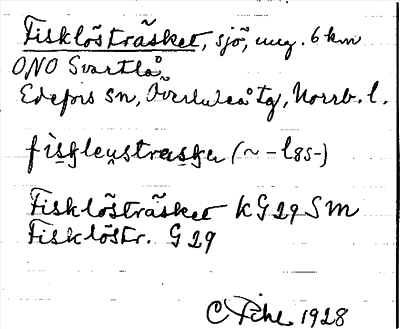 Fisklösträsket, sjö, ung. 6 km
ONO Svartlå,
Edefors sn, Överluleå tg, Norrb. l.
Fisklösträsket KG 29 SM
Fisklöstr. G 29
C Pihl 1928